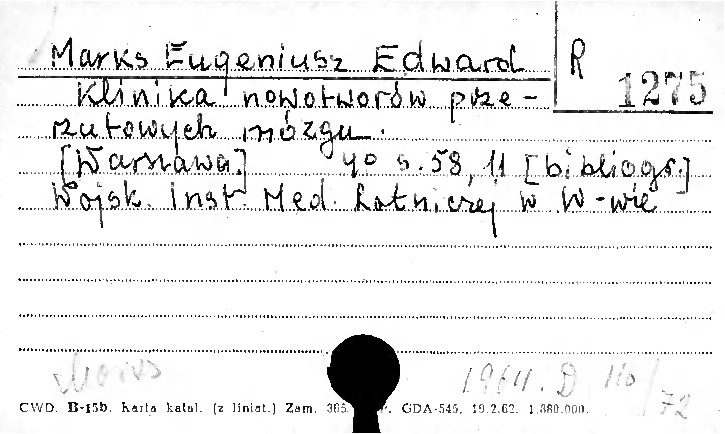 Marks Eugeniusz Edward
R
1275
Klinika nowotworów prze-
rzutowych mózgu.
[Warszawa.] 40 s. 58, 11 [bibliogr.]
Wojsk. Inst. Med. Lotniczej w W-wie
1964. D 110/72
CWD. B-15b. Karta katal. (z liniat.) Zam. 365. GDA-545. 19.2.62. 1.880.000.